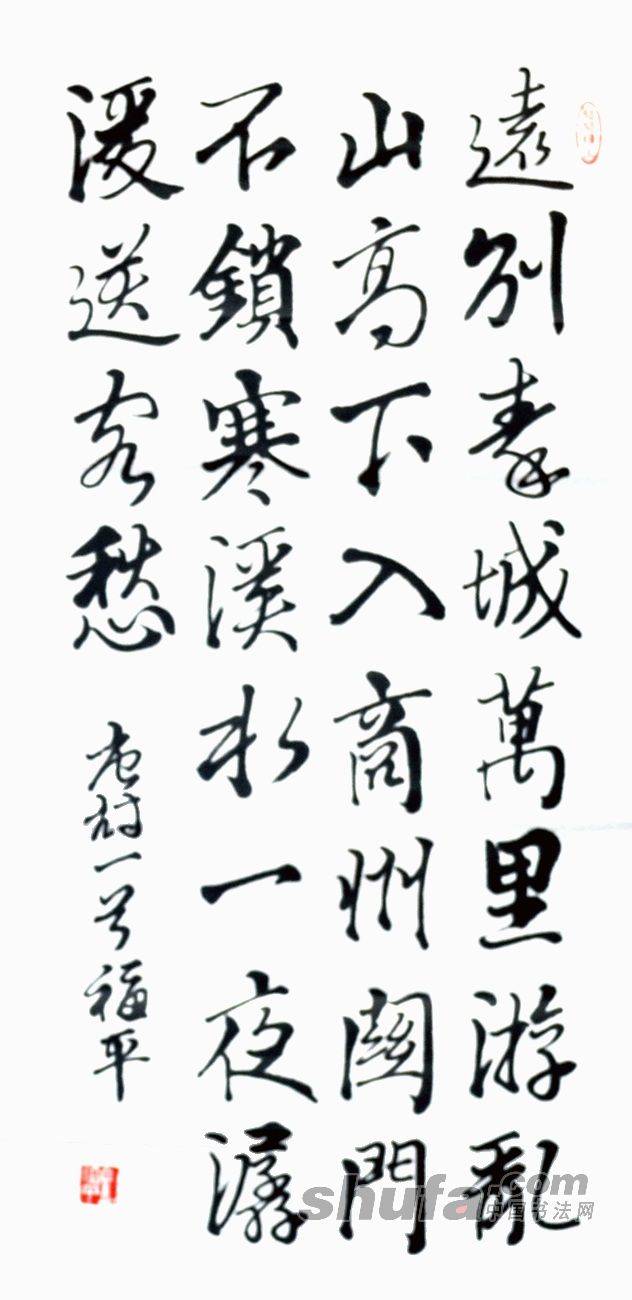 遠別秦城萬里游亂
山高下入商州關門
不鎖寒溪水一夜潺
湲送客愁
唐詩一首福平
shufa.com
中国书法网